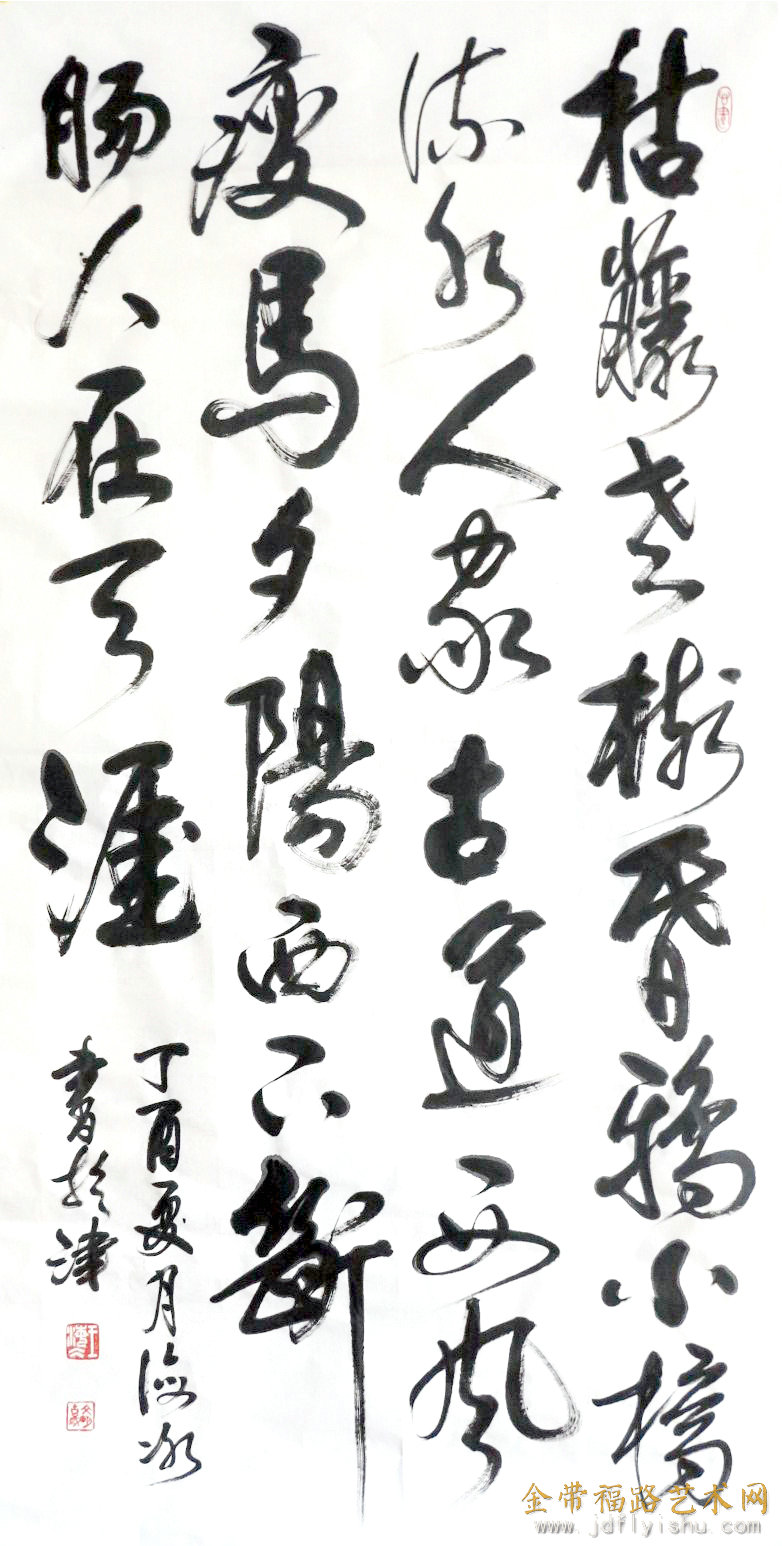 枯藤老樹昏鴉小橋
流水人家古道西風
瘦馬夕陽西下斷
腸人在天涯
丁酉夏月海冰
書於津
金带福路艺术网
www.jdflyishu.com